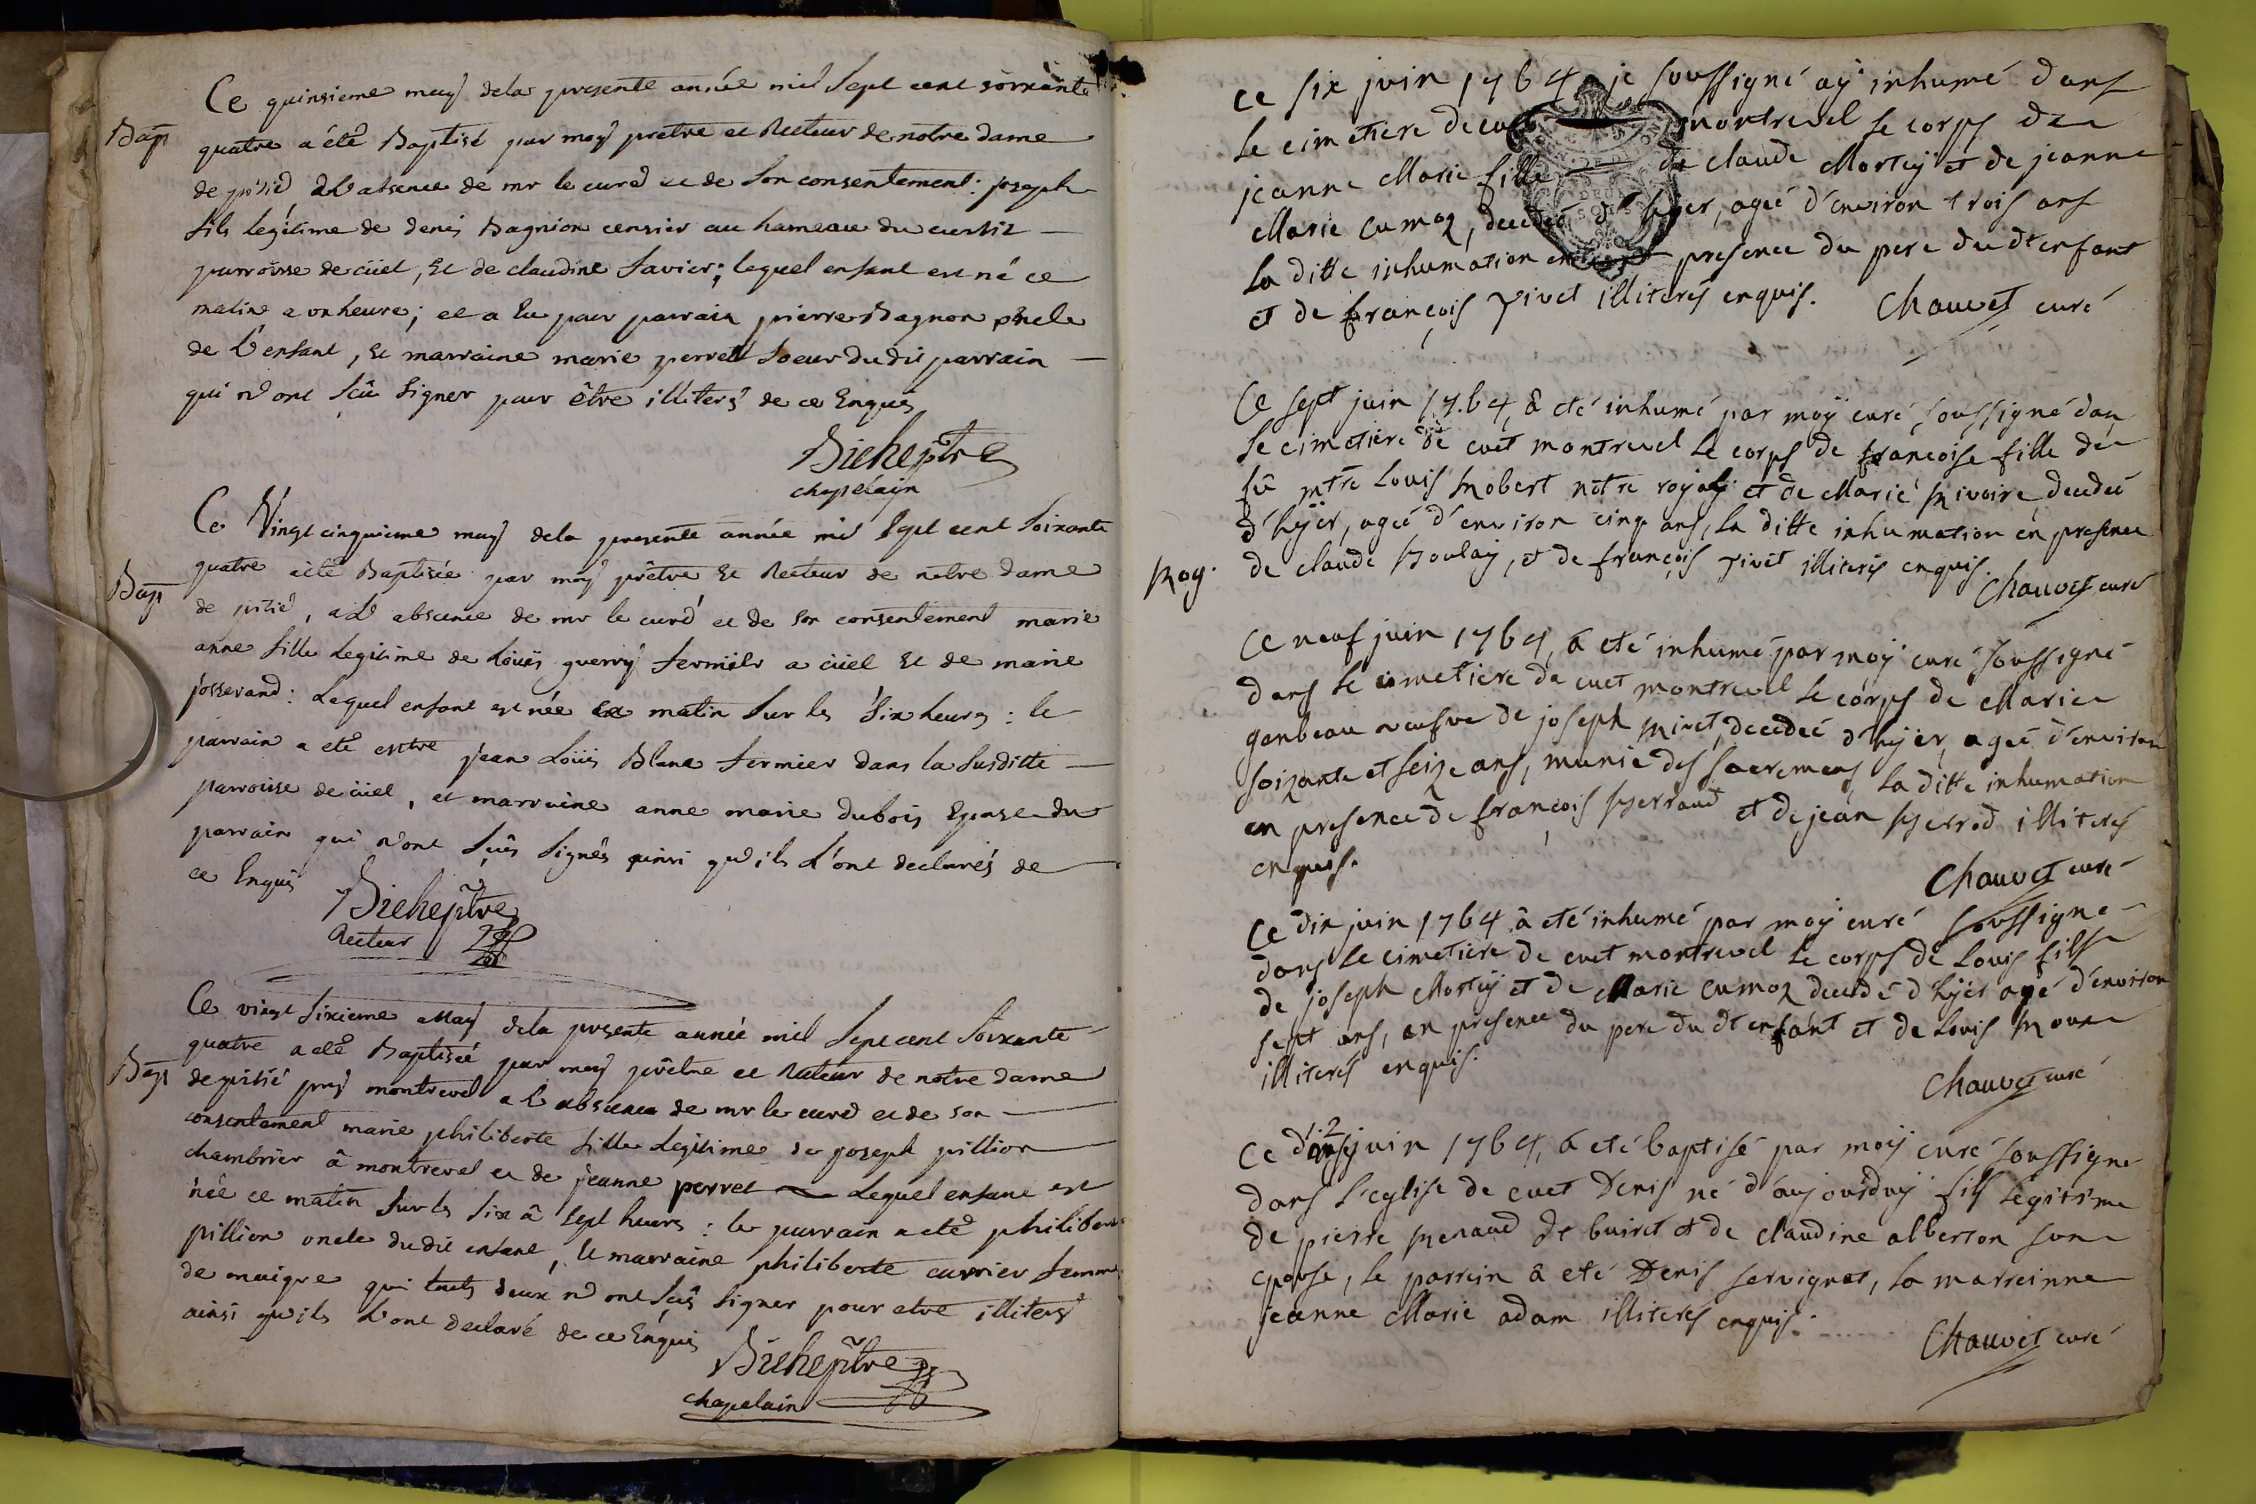 Ce quinsieme may dela presente année mil Sept cent soixante
Bap
quatre a été Baptisé par moy prêtre et Recteur de notre dame
de pitié a L'absence de mr le curé et de Son consentement: joseph
fils legitime de denis Bagnion censier au hameau du
parroisse de cüet, Et de claudine favier; lequel enfant est né ce
matin a onheure; et a Eu pour parrain pierre Bagnon oncle
de L'enfant, Et marraine marie perret Soeur du dit parrain
qui n'ont Scû Signer pour être illiterés de ce Enquis
Biche ptre
chapelain
Ce Vingt cinquieme may dela presente année mil Sept cent Soixante
Bap
quatre a été Baptisée par moy prêtre Et Recteur de notre dame
de pitié, a L'absence de mr le curé et de son consentement marie
anne fille Legitime de Loüis guerry fermier a cüel Et de marie
josserand: Lequel enfant est née ce matin Sur les Six heures: le
parrain a été jean Loüis Blanc fermier dans la Susditte
parroisse de cüel, et marraine anne marie dubois Epouse du
parrain qui n'ont Sçûs Signés ainsi qu'ils L'ont declarés de
ce Enquis
Biche ptre
Recteur
Ce vingt Sixieme May dela presente année mil Sept cent Soixante
quatre a été Baptisée par moy prêtre et Recteur de notre dame
Bap
de pitié près montrevel a L'absence de mr le curé et de son
consentement marie philiberte fille Legitime de joseph pillion
chambrier à montrevel et de jeanne perret Lequel enfant est
née ce matin Sur les Six à Sept heures: le parrain a été philibert
pillion oncle dudit enfant, Et marraine philiberte cuvrier femme
de maigre qui touts deux n'ont Sçûs Signer pour etre illiterés
ainsi qu'ils L'ont declaré de ce Enquis
Biche ptre
chapelain
ce six juin 1764 je soussigné aÿ inhumé dans
le cimetiere de cuet montrevel le corps de
jeanne Marie fille de claude Morteÿ et de jeanne
Marie cumoz, decedée d'hyer, ageé d'environ trois ans
la ditte inhumation en presence du pere du dt enfant
et de françois vivet illiterés enquis. Chauvet curé
Ce sept juin 1764 à eté inhumé par moÿ curé soussigné dan
le cimetiere de cuet montrevel le corps de françoise fille de
fû mtre Louis Mobert notre royal et de Marie Mivoire, decedeé
d'hÿer, ageé d'environ cinq ans, la ditte inhumation en presence
Mog.
de claude Boulaÿ, et de françois vivet illiterés enquis.
Chauvet curé
Ce neuf juin 1764, à eté inhumé par moÿ curé soussigné
dans le cimetiere de cuet montrevel le corps de Marie
gonbeau veufve de joseph Miret, decedeé d'hÿer, ageé d'environ
soixante et seize ans, munie des sacremens, la ditte inhumation
en presence de françois perraud et de jean perrod illiterés
enquis.
Chauvet curé
Ce dix juin 1764 à eté inhumé par moÿ curé soussigné
dans le cimetiere de cuet montrevel le corps de Louis fils
de joseph Morteÿ et de Marie cumoz decedé d'hÿer agé d'environ
sept ans, en presence du pere du dt enfant et de Louis
illiterés enquis.
Chauvet curé
12
Ce juin 1764, à eté baptisé par moÿ curé soussigné
dans l'eglise de cuet Denis né d'aujourduÿ fils legitime
de pierre Menaud de buiret et de claudine alberton son
epouse, le parrein à eté Denis servignat, la marreinne
jeanne Marie adam illiterés enquis.
Chauvet curé